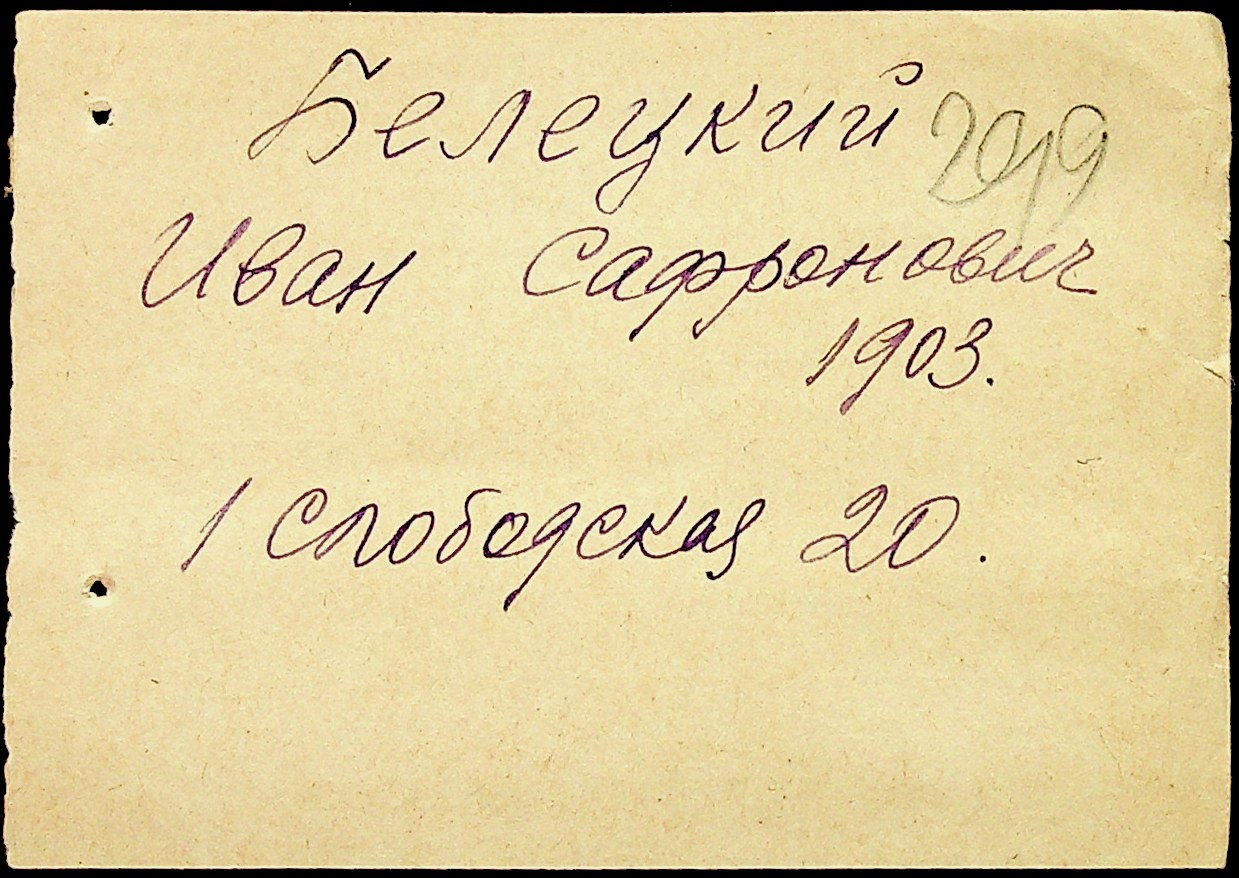 Белецкий
Иван Сафронович
1903.
1 Слободская 20.